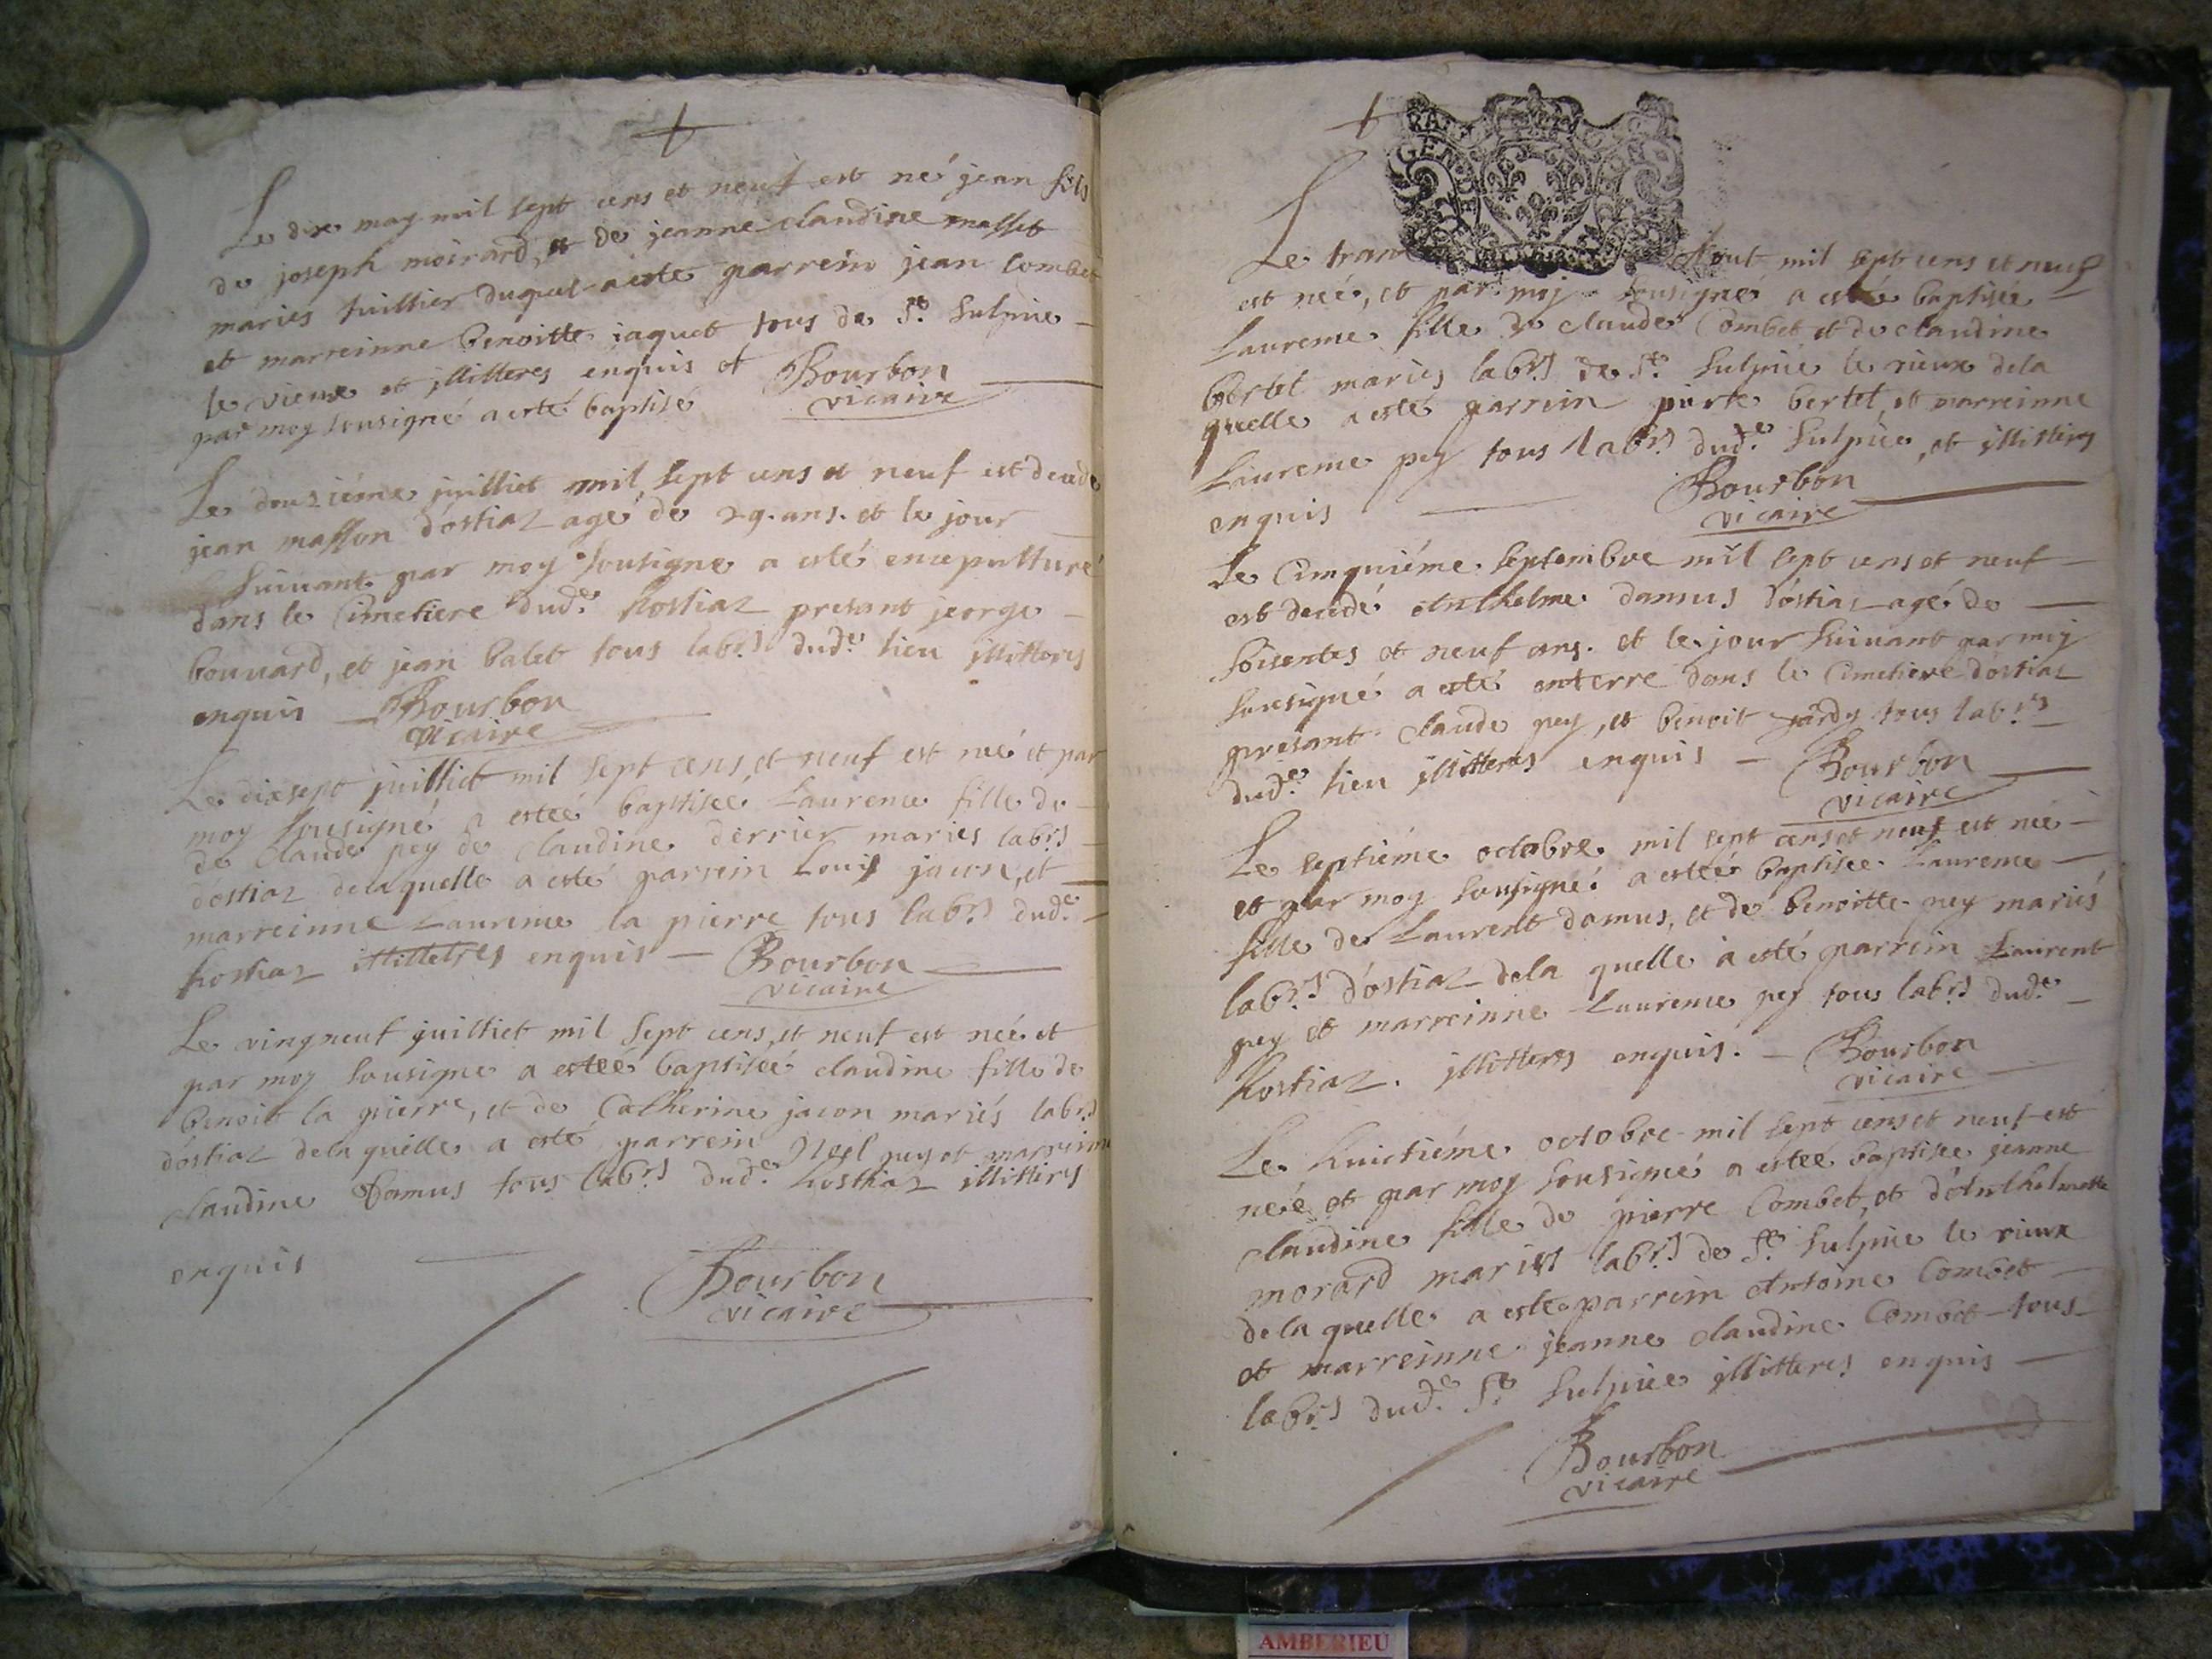 Le dix may mil sept cens et neuf est né jean fils
de joseph moirard, et de jeanne claudine masset
maries tuillier duquel a esté parrein jean Combet
et marreinne benoitte jaquet tous de St. Sulpice
le vieux et illitteres enquis et
par moy sousigné a esté baptisé
Bourbon
vicaire
Le deuziéme juilliet mil sept cens et neuf est decedé
jean masson d'ostiaz agé de 29. ans. et le jour
suivant par moy sousigne a esté ensepulturé
dans le Cimetiere dud. hostiaz presant jeorge
bouvard, et jean balet tous labrs dud. lieu illitteres
enquis Bourbon
vicaire
Le dixsept juilliet mil sept cens et neuf est neé et par
moy sousigné a esteé baptiseé Laurence fille de
de claude pey de claudine derrier mariés labrs
dostiaz delaquelle a esté parrein Louis jacon, et
marreinne Laurence la pierre tous labrs dud.
hostiaz illitteres enquis Bourbon
vicaire
Le vingneuf juilliet mil sept cens, et neuf est neé et
par moy sousigne a esteé baptiseé claudine fille de
benoit la pierre, et de Catherine jacon mariés labrs
dostiaz dela quelle a esté parrein Noel pey et marreinne
claudine damus tous labrs dud. hostiaz illitteres
enquis
Bourbon
vicaire
GEN
Le Aout mil sept cens et neuf
est neé, et par moy sousigné a esteé baptiseé
Laurence fille de claude Combet et de claudine
bertet mariés labrs de St. Sulpice le vieux dela
quelle a esté parrein pierre bertet, et marreinne
Laurence pey tous labrs dud. Sulpice, et illitteres
enquis Bourbon
vicaire
Le Cinquiéme septembre mil sept cens et neuf
est decedé Anthelme damus d'ostiaz agé de
soisentes et neuf ans. et le jour suivant par moy
sousigné a esté enterre dans le Cimetiere dostiaz
presant claude pey, et benoit jardy tous labrs
dud. lieu illitteres enquis Bourbon
vicaire
Le septiéme octobre mil sept cens et neuf est neé
et par moy sousigné a esteé baptisee Laurence
fille de Laurent damus, et de benoitte pey mariés
labrs d'ostiaz dela quelle a esté parrein Laurent
pey et marreinne Laurence pey tous labrs dud.
hostiaz. illitteres enquis. Bourbon
vicaire
Le huictiéme octobre mil sept cens et neuf est
neé et par moy sousigné a esteé baptisee jeanne
claudine fille de pierre Combet, et d'Anthelmette
morard mariés labrs de St. Sulpice le vieux
de la quelle a esté parrein Antoine Combet
et marreinne jeanne claudine Combet tous
labrs dud. St Sulpice illitteres enquis
Bourbon
vicaire
AMBERIEU